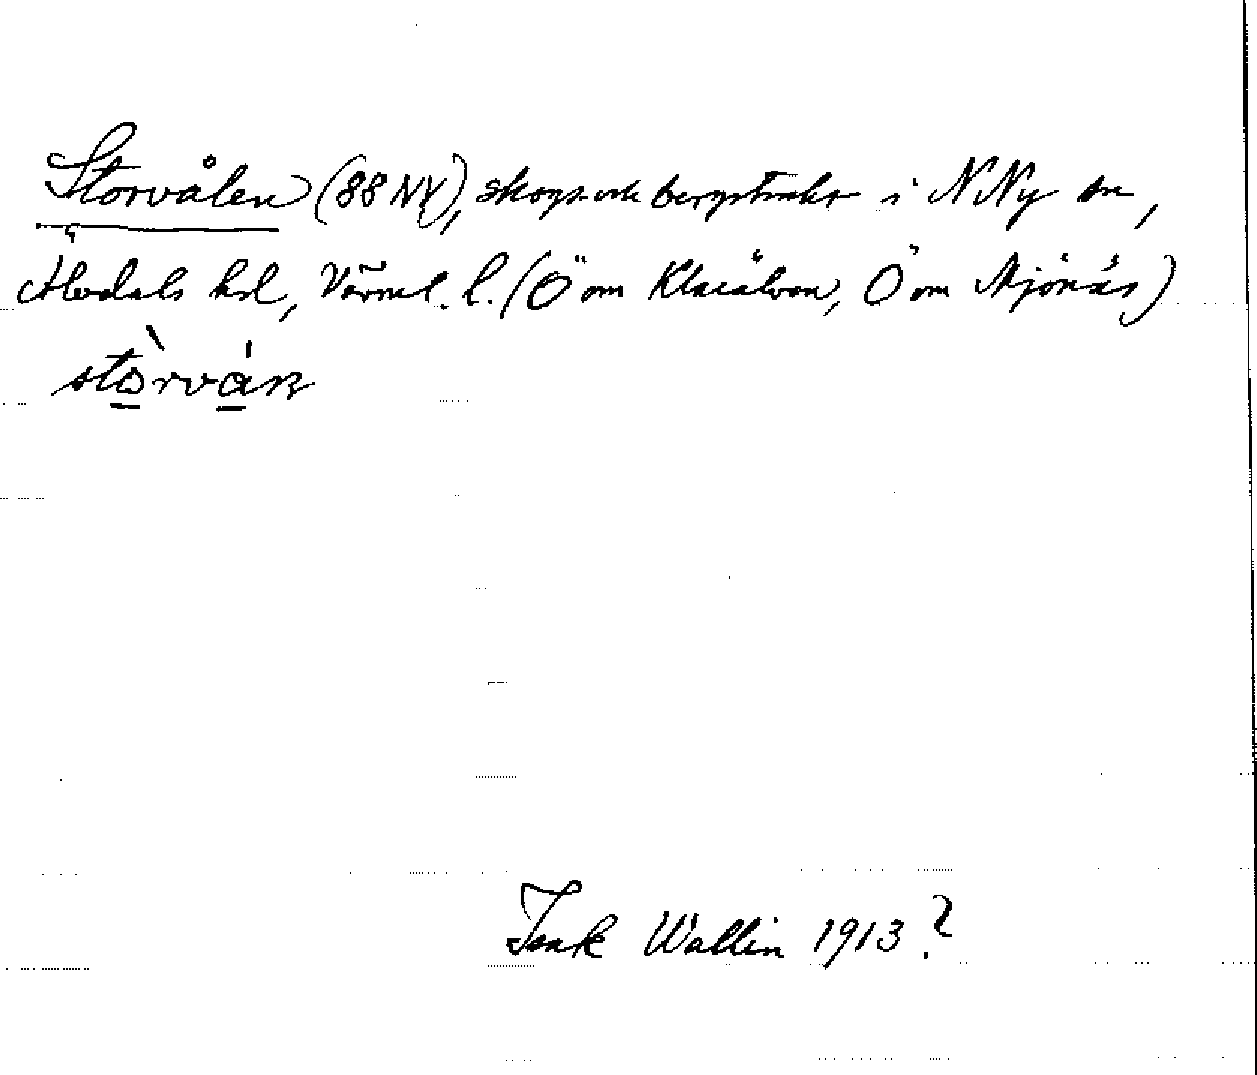 Storvålen (88 NV), skogs- och bergstrakt i N Ny sn,
Älvdals hd, Värml. l. (Ö om Klarälven, Ö om Mjönäs)
stòrván
Isak Wallin 1913?